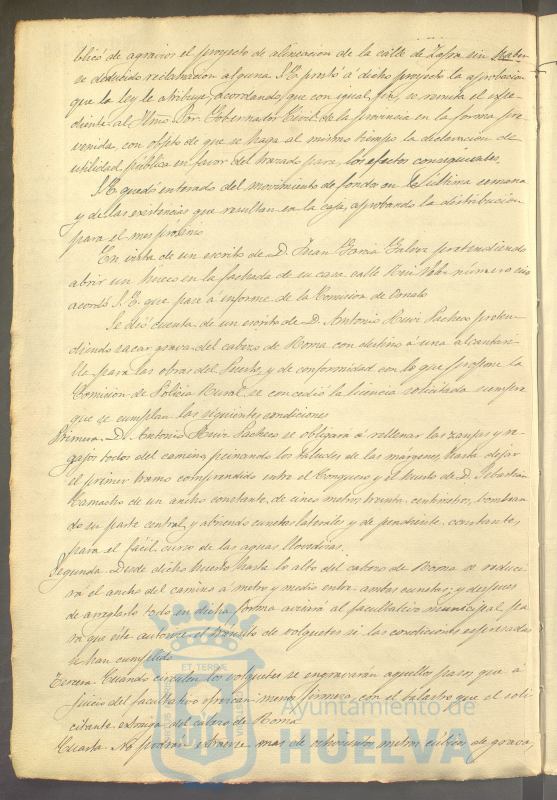 blicó de agravios el proyecto de alineacion de la calle de Zafra sin haber
se deducido reclamacion alguna S.E. prestó á dicho proyecto la aprobacion
que la ley le atribuye, acordando, que con igual fin, se remita el expe-
diente al Ilmo. Sor. Gobernador Civil de la provincia en la forma pre-
venida, con objeto de que se haga al mismo tiempo la declaracion de
utilidad pública en favor del trazado para los efectos consiguientes.
S.E. quedó enterado del movimiento de fondos en la última semana
y de las existencias que resultan en la caja, aprobando la distribucion
para el mes próximo
En vista de un escrito de D. Juan Garcia pretendiendo
abrir un hueco en la fachada de su casa calle número
acordó S.E. que pase á informe de la Comision de Ornato
Se dió cuenta de un escrito de D. Antonio Ruiz Pacheco preten-
diendo sacar grava del cabezo de Roma con destino á una alcantari-
lla para las obras del Puerto, y de conformidad con lo que propone la
Comision de Policia Rural se concedió la licencia solicitada siempre
que se cumplan las siguientes condiciones
Primera. D. Antonio Ruiz Pacheco se obligará á rellenar las zanjas y re-
gajos todos del camino, peinando los taludes de las márgenes, hasta dejar
el primer tramo comprendido entre el Conquero y el huerto de D. Sebastian
Camacho de un ancho constante de cinco metros treinta centimetros, bomban-
do su parte central y abriendo cunetas laterales y de pendiente constantes,
para el fácil curso de las aguas llovedizas.
Segunda. Desde dicho huerto hasta lo alto del cabezo de Roma se reduci-
rá el ancho del camino á metro y medio entre ambas cunetas; y despues
de arreglarlo todo en dicha forma avisará al facultativo municipal pa-
ra que este autorice el tránsito de volquetes si las condiciones expresadas
se han cumplido
Tercera Cuando circulen los volquetes se engravarán aquellos pasos que á
juicio del facultativo ofrezcan menos firmeza, con el balastro que el soli-
citante extraiga del cabezo de Roma
Cuarta. No podrán extraerse mas de ochocientos metros cúbicos de grava,
ET TERRÆ
Ayuntamiento de
HUELVA